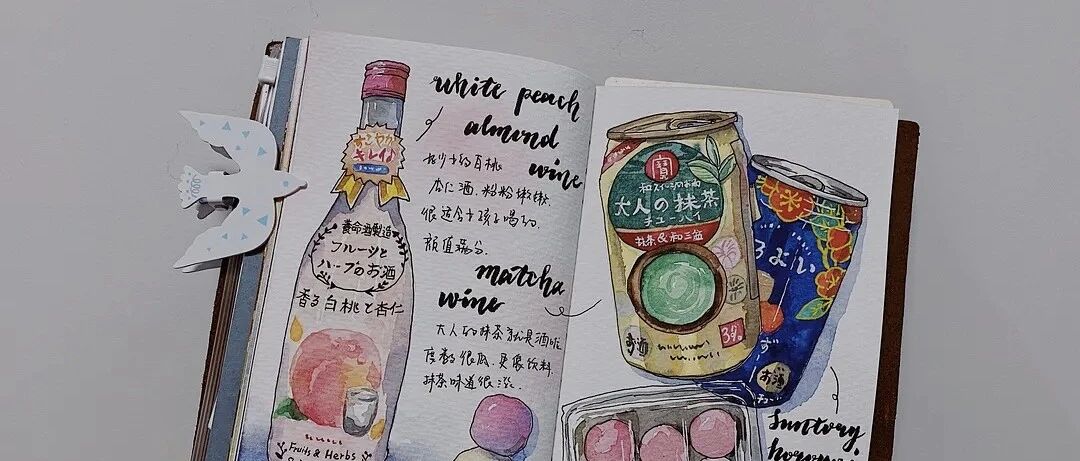 white peach
almond
wine
炒少的白桃
杏仁酒.粉粉嫩嫩.
很适合女孩子喝的.
颜值满分.
matcha
wine
大人的抹茶就是酒啦
度数很低.更像饮料.
抹茶味道很涩.
すこやか
キレイ
養命酒製造
フルーツと
ハーブのお酒
香る白桃と杏仁
Fruits & Herbs
寶
和スイーツのお酒
大人の抹茶
チューハイ
抹茶&和三盆
3%
お酒
ろよい
お酒
Suntory
horoyoi